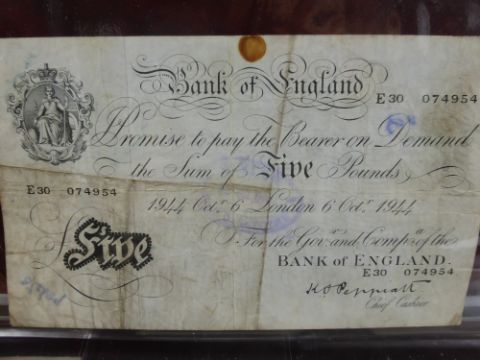 Bank of England
E30 074954
I Promise to pay the Bearer on Demand
the Sum of Five Pounds
E30 074954
1944 Oct.r 6 London 6 Oct.r 1944
For the Gov.r and Comp.a of the
£Five
BANK OF ENGLAND.
E30 074954
K O Peppiatt
Chief Cashier